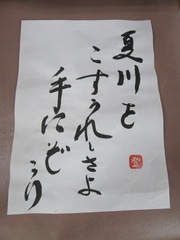 夏川を
こすうれしさよ
手にぞ
うり